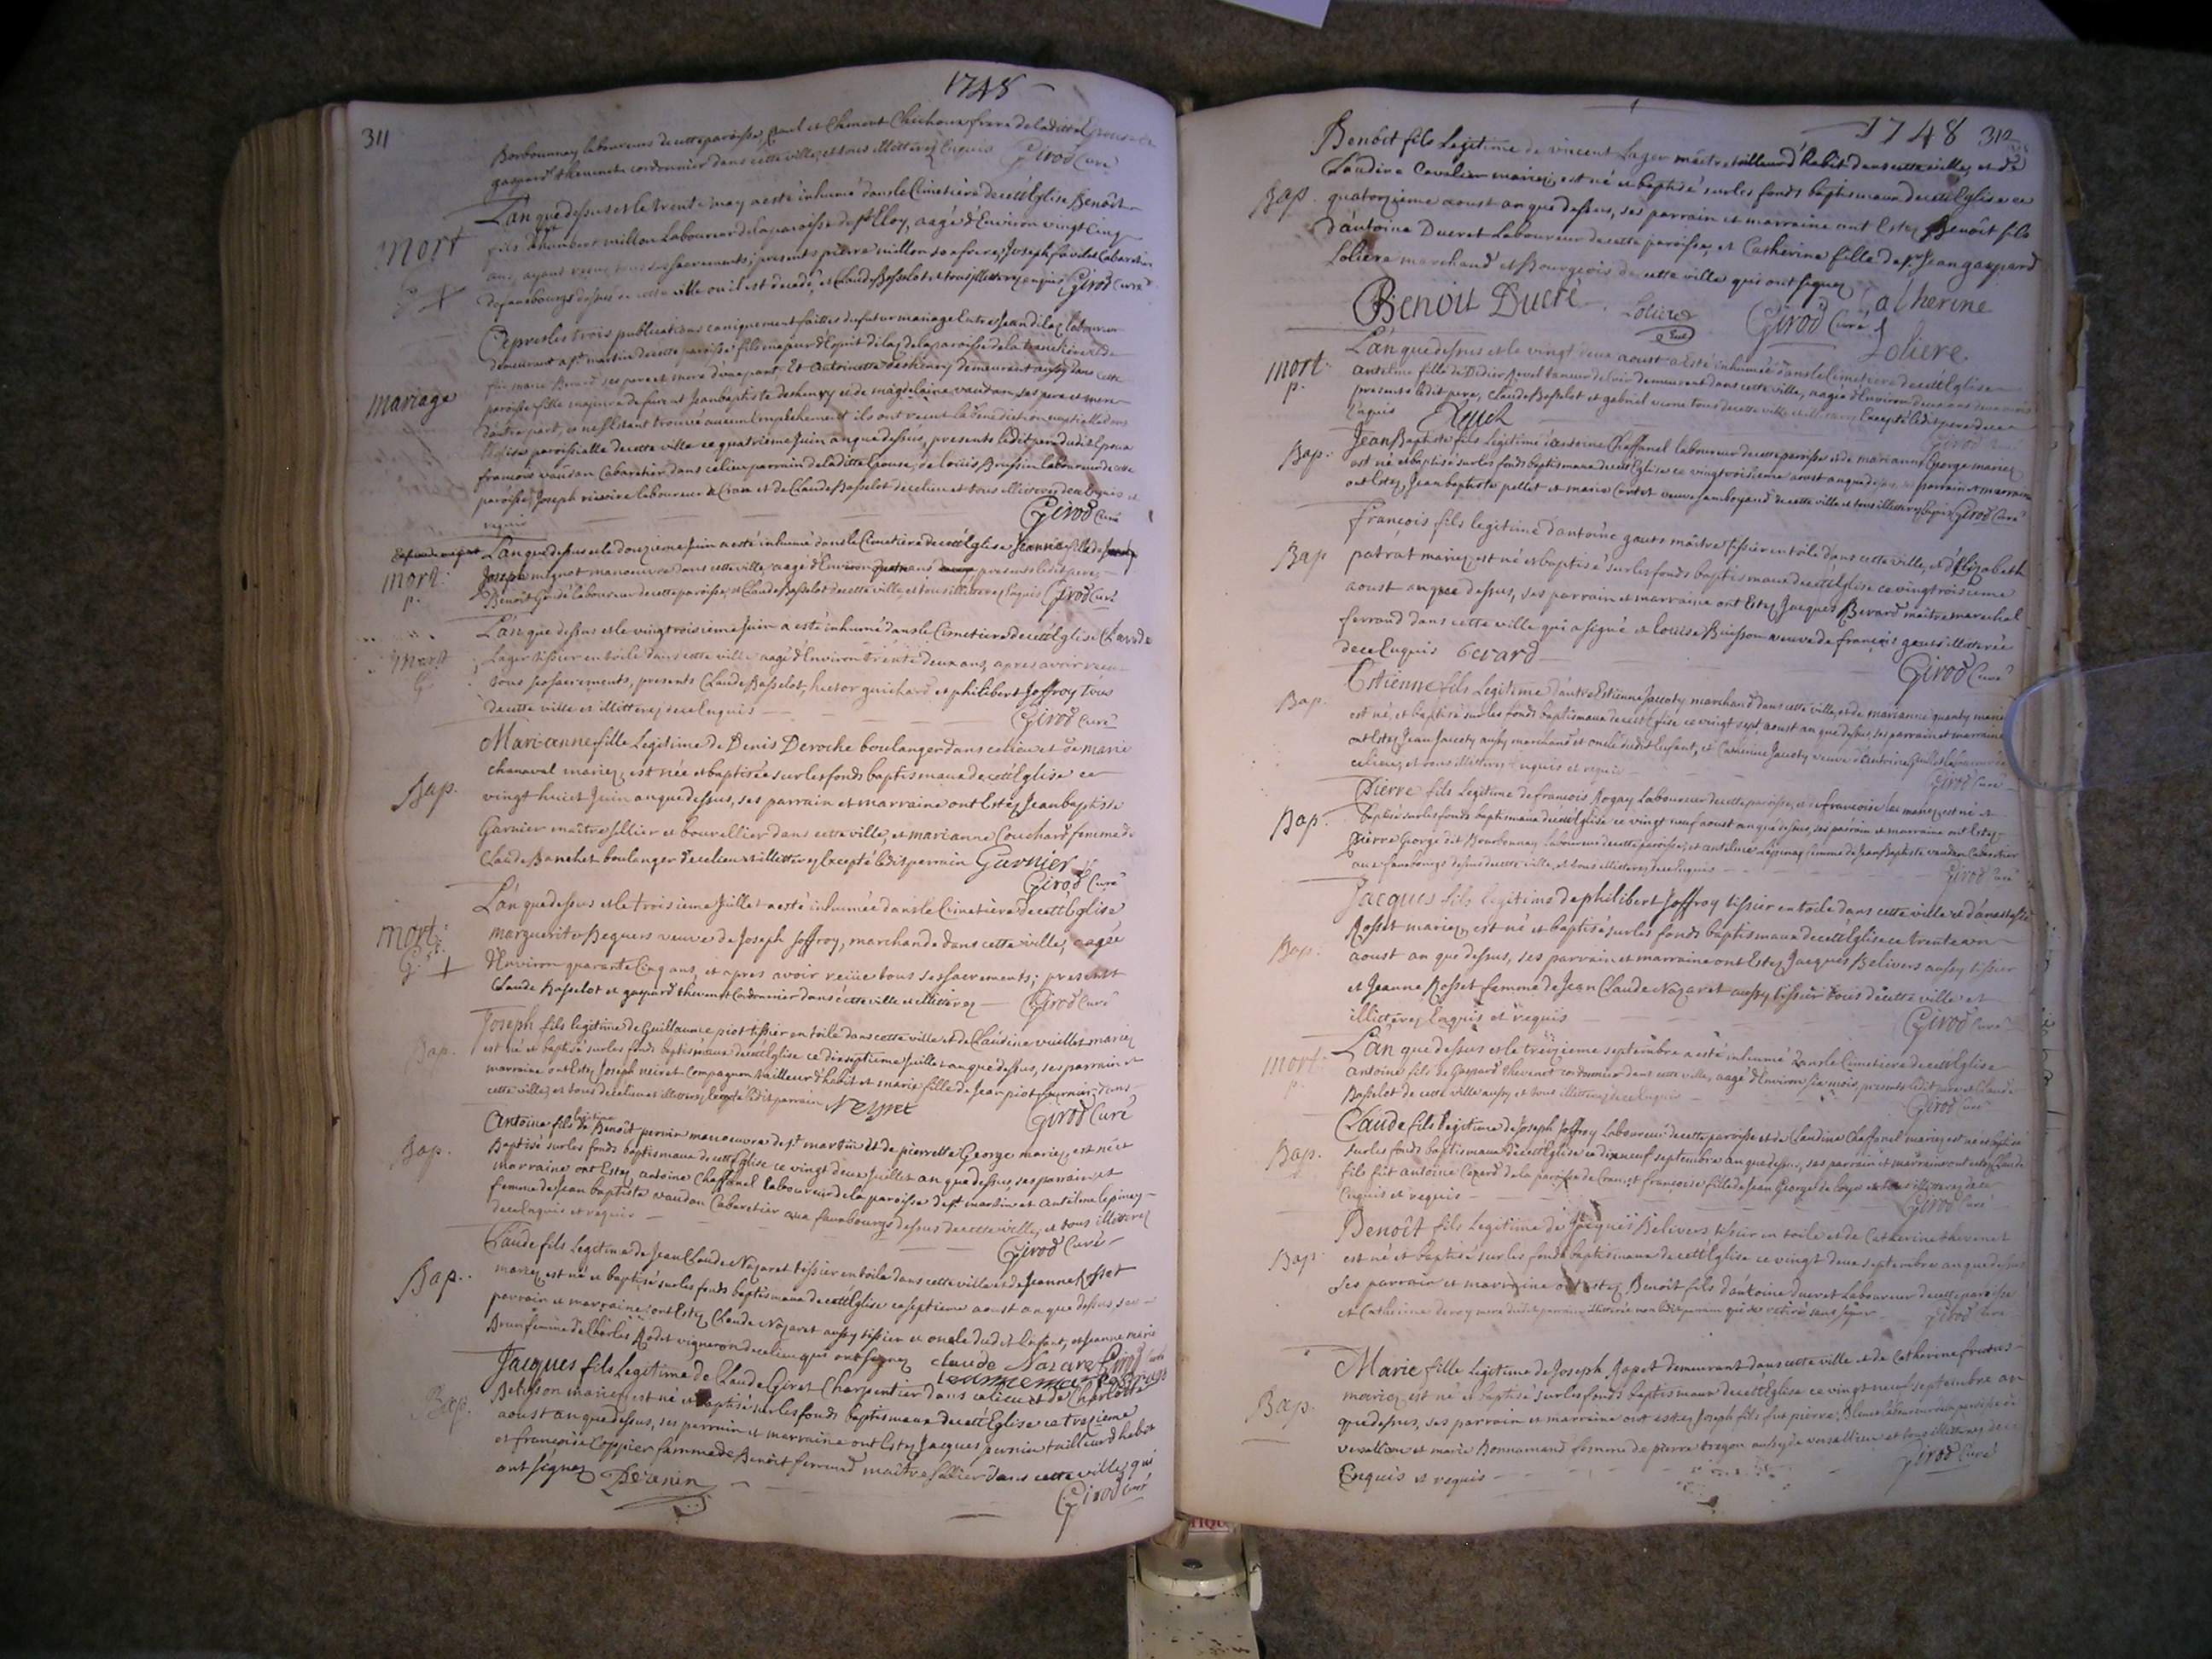 1748
311
Borbonnay laboureur de cette paroisse, et Clement Chichoux frere de laditte Epouse
gaspard thevenet cordonnier dans cette ville, et tous illitterez Enquis Girod Curé
L'an que dessus et le trente may a esté inhumé dans le Cimetiere de cette Eglise Benoît
mort
fils d'humbert millon Laboureur de la paroisse de St Eloy, aagé d'Environ vingt cinq
ans, ayant receu tous ses sacrements; presents pierre millon son frere, Joseph Cabaretier
de faubourgs dessus de cette ville ou il est decedé, et Claude Basselot et tous illitterez enquis Girod Curé
Ce apres les trois publications canoniquement faittes du futur mariage Entre Jean dilas laboureur
demeurant a St martin de cette paroisse fils majeur d'Esprit dilas de la paroisse de la tranchiere et de
mariage
marie Brard ses pere et mere d'une part, Et Antoinette deshenry demeurant aussy dans cette
paroisse fille majeure de furent Jean baptiste deshenry et de magdelaine vaudan ses pere et mere
d'autre part, et ne s'Estant trouvé aucun Empechement ils ont receu la benediction nuptialle dans
l'Eglise paroissialle de cette ville ce quatrieme Juin an que dessus, presents ledit pere dudit Epoux
francois vaudan Cabaretier dans ce lieu parrain de laditte Epouse, de louis Brussin laboureur de cette
paroisse, Joseph riviere laboureur de Crans et de Claude Basselot de ce lieu et tous illitterez de ce Enquis et
requis
Girod Curé
L'an que dessus et le douzieme Juin a esté inhumé dans le Cimetiere de cette Eglise Jeanne fille de
mort:
p.
Joseph mignot manoeuvre dans cette ville, aagé d'Environ quatre ans presents ledit pere
Benoît Gondé laboureur de cette paroisse, et Claude Basselot de cette ville, et tous illitterez Enquis Girod Curé
L'an que dessus et le vingt troisieme Juin a esté inhumé dans le Cimetiere de cette Eglise Claude
mort
G
Lager tissier en toile dans cette ville aagé d'Environ trente deux ans, apres avoir receu
tous ses sacrements, presents Claude Basselot, hector guichard et philibert Joffroy tous
de cette ville et illitterez de ce Enquis
Girod Curé
Marianne fille Legitime de Denis Deroche boulanger dans ce lieu et de marie
chanaval mariez, est née et baptisée sur les fonds baptismaux de cette Eglise ce
Bap.
vingt huict Juin an que dessus, ses parrain et marraine ont Estez Jean baptiste
Garnier maître sellier et bourellier dans cette ville, et marianne Couchard femme de
Claude Banchet boulanger de ce lieu et illitterez Excepté ledit parrain Garnier
Girod Curé
L'an que dessus et le troisieme Juillet a esté inhumée dans le Cimetiere de cette Eglise
mort:
G.
marguerite Bequers veuve de Joseph Joffroy, marchande dans cette ville, aagée
d'Environ quarante cinq ans, et apres avoir receüe tous ses sacrements; presents
Claude Basselot et gaspard thevenet Cordonnier dans cette ville et illitterez Girod Curé
Joseph fils legitime de Guillaume piot tissier en toile dans cette ville et de Claudine vuillet mariez
Bap.
est né et baptisé sur les fonds baptismaux de cette Eglise ce dixseptieme Juillet an que dessus, ses parrain et
marraine ont Estez Joseph neiret Compagnon tailleur d'habit et marie fille de Jean piot fournier dans
cette ville, et tous de ce lieu et illitterez, Excepté ledit parrain Neiret
Girod Curé
Antoine fils legitime de Benoît perrin manoeuvre de St martin et de pierrette George mariez, est né et
Bap.
Baptisé sur les fonds baptismaux de cette Eglise ce vingt deux Juillet an que dessus, ses parrain et
marraine ont Estez antoine Chaffanel laboureur de la paroisse de St martin et antelme lepinay
femme de Jean baptiste vaudan Cabaretier aux fauxbourgs dessus de cette ville, et tous illitterez
de ce Enquis et requis
Girod Curé
Claude fils Legitime de Jean Claude Nazaret tissier en toile dans cette ville et de Jeanne Rosset
Bap.
mariez est né et baptisé sur les fonds baptismaux de cette Eglise ce septieme aoust an que dessus, ses
parrain et marraine ont Estez Claude Nazaret aussy tissier et oncle dudit Enfant, et Jeanne marie
Brun femme de Charles Rodet vigneron de ce lieu qui ont signez claude Nazaret Girod Curé
Jacques fils Legitime de Claude Giret Charpentier dans ce lieu et de Charlotte
Bap.
Betisson mariez est né et baptisé sur les fonds baptismaux de cette Eglise ce treizieme
aoust an que dessus, ses parrain et marraine ont Estez Jacques persin tailleur d'habit
et francoise Coppier femme de Benoît ferrand maître sellier dans cette ville, qui
ont signez
Girod Curé
1748 312
Benoît fils Legitime de vincent Lager maître tailleur d'habit dans cette ville, et de
Claudine Cavalier mariez, est né et baptisé sur les fonds baptismaux de cette Eglise ce
Bap.
quatorzieme aoust an que dessus, ses parrain et marraine ont Estez Benoît fils
d'antoine Ducret Laboureur de cette paroisse, et Catherine fille de Sr Jean gaspard
Loliere marchand et Bourgeois de cette ville qui ont signez
Benoit Ducré Loliere Girod Curé Catherine
Loliere
L'an que dessus et le vingt deux aoust a esté inhumée dans le Cimetiere de cette Eglise
mort:
p.
antelme fille de Didier tanneur demeurant dans cette ville, aagée d'Environ deux ans
presents ledit pere, Claude Basselot et gabriel tous de cette ville et illitterez Excepté ledit pere de ce
Enquis
Girod
Jean Baptiste fils Legitime d'antoine Chaffanel laboureur de cette paroisse et de marianne George mariez
Bap.
est né et baptisé sur les fonds baptismaux de cette Eglise ce vingt troisieme aoust an que dessus, ses parrain et marraine
ont Estez, Jean baptiste pellet et marie Cortet veuve Jamboyand de cette ville et tous illitterez Enquis Girod Curé
François fils legitime d'antoine gauts maître tissier en toile dans cette ville, et d'Elizabeth
Bap
patrat mariez est né et baptisé sur les fonds baptismaux de cette Eglise ce vingt troisieme
aoust an que dessus, ses parrain et marraine ont Estez Jacques Berard maître marechal
ferrand dans cette ville qui a signé et louise Buisson veuve de françois gauts illitterée
de ce Enquis berard
Girod Curé
Estienne fils Legitime d'autre Estienne Jacoty marchand dans cette ville, et de marianne quanty mariez
Bap.
est né, et baptisé sur les fonds baptismaux de cette Eglise ce vingt sept aoust an que dessus, ses parrain et marraine
ont Estez Jean Jacoty aussy marchand et oncle dudit Enfant, et Catherine Jacoty veuve d'antoine
ce lieu, et tous illitterez Enquis et requis
Girod Curé
Pierre fils Legitime de francois Rogay Laboureur de cette paroisse, et de francoise mariez est né et
Bap.
baptisé sur les fonds baptismaux de cette Eglise ce vingt neuf aoust an que dessus, ses parrain et marraine ont Estez
Pierre George dit Bourbonnay Laboureur de cette paroisse, et antelme lepinay femme de Jean Baptiste vaudan Cabaretier
aux fauxbourgs dessus de cette ville, et tous illitterez de ce Enquis
Girod Curé
Jacques fils legitime de philibert Joffroy tissier en toile dans cette ville et d'anastasie
Bap.
Rosset mariez, est né et baptisé sur les fonds baptismaux de cette Eglise ce trente un
aoust an que dessus, ses parrain et marraine ont Estez Jacques Belivers aussy tissier
et Jeanne Rosset femme de Jean Claude Nazaret aussy tissier tous de cette ville et
illitterez Enquis et requis
Girod Curé
L'an que dessus et le treizieme septembre a esté inhumé dans le Cimetiere de cette Eglise
mort:
p.
antoine fils de Gaspard thevenet cordonnier dans cette ville, aagé d'Environ six mois, presents ledit pere et Claude
Basselot de cette ville aussy et tous illitterez de ce Enquis
Girod Curé
Claude fils legitime de Joseph Joffroy Laboureur de cette paroisse et de Claudine Chaffanel mariez est né et baptisé
Bap.
sur les fonds baptismaux de cette Eglise ce dixneuf septembre an que dessus, ses parrain et marraine ont estez Claude
fils fût antoine Cozard de la paroisse de Crans et françoise fille de Jean George de loyes et tous illitterez de ce
Enquis et requis
Girod Curé
Benoît fils Legitime de Jacques Belivers tissier en toile et de Catherine thevenet
Bap.
est né et baptisé sur les fonds baptismaux de cette Eglise ce vingt deux septembre an que dessus
ses parrain et marraine ont estez Benoît fils d'antoine Ducret Laboureur de cette paroisse
et Catherine deroy mere dudit parrain illitterée non ledit parrain qui se retiré sans signer Girod Curé
Marie fille Legitime de Joseph Japet demeurant dans cette ville et de Catherine
Bap.
mariez est né et baptisé sur les fonds baptismaux de cette Eglise ce vingt neuf septembre an
que dessus, ses parrain et marraine ont estez Joseph fils fut pierre de
versallieu et marie Bonnamand femme de pierre tragon aussy de versallieu et tous illitterez de ce
Enquis et requis
Girod Curé